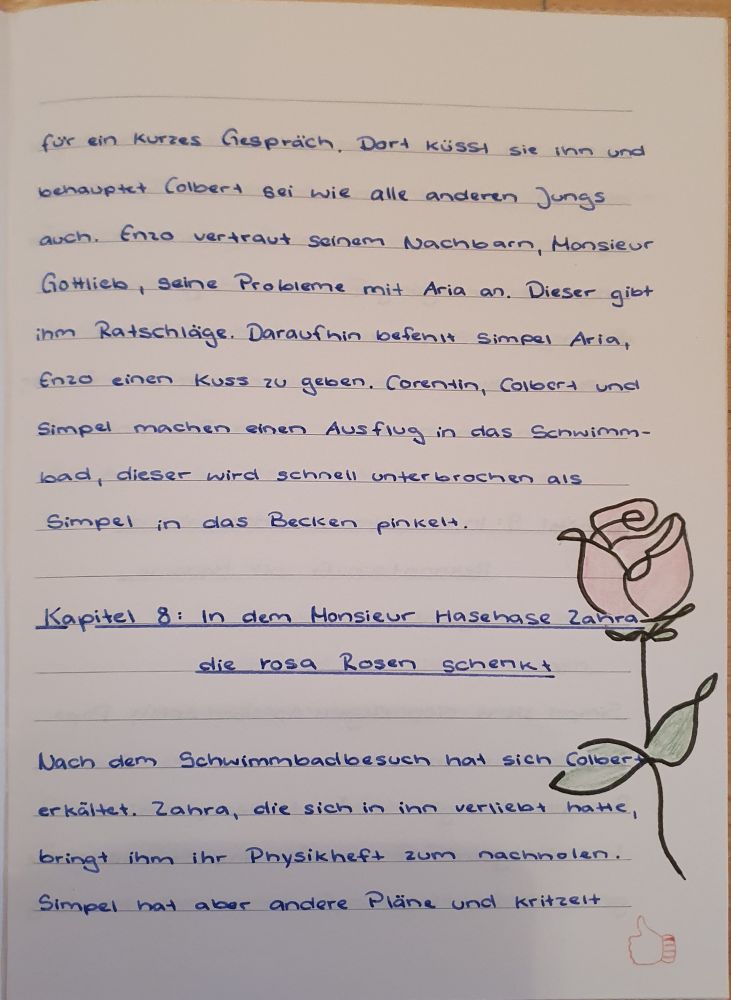 für ein kurzes Gespräch. Dort küsst sie ihn und
behauptet Colbert sei wie alle anderen Jungs
auch. Enzo vertraut seinem Nachbarn, Monsieur
Gottlieb, seine Probleme mit Aria an. Dieser gibt
ihm Ratschläge. Daraufhin befehlt Simpel Aria,
Enzo einen Kuss zu geben. Corentin, Colbert und
Simpel machen einen Ausflug in das Schwimm-
bad, dieser wird schnell unterbrochen als
Simpel in das Becken pinkelt.
Kapitel 8: In dem Monsieur Hasehase Zahra
die rosa Rosen schenkt
Nach dem Schwimmbadbesuch hat sich Colbert
erkältet. Zahra, die sich in ihn verliebt hatte,
bringt ihm ihr Physikheft zum nachholen.
Simpel hat aber andere Pläne und kritzelt